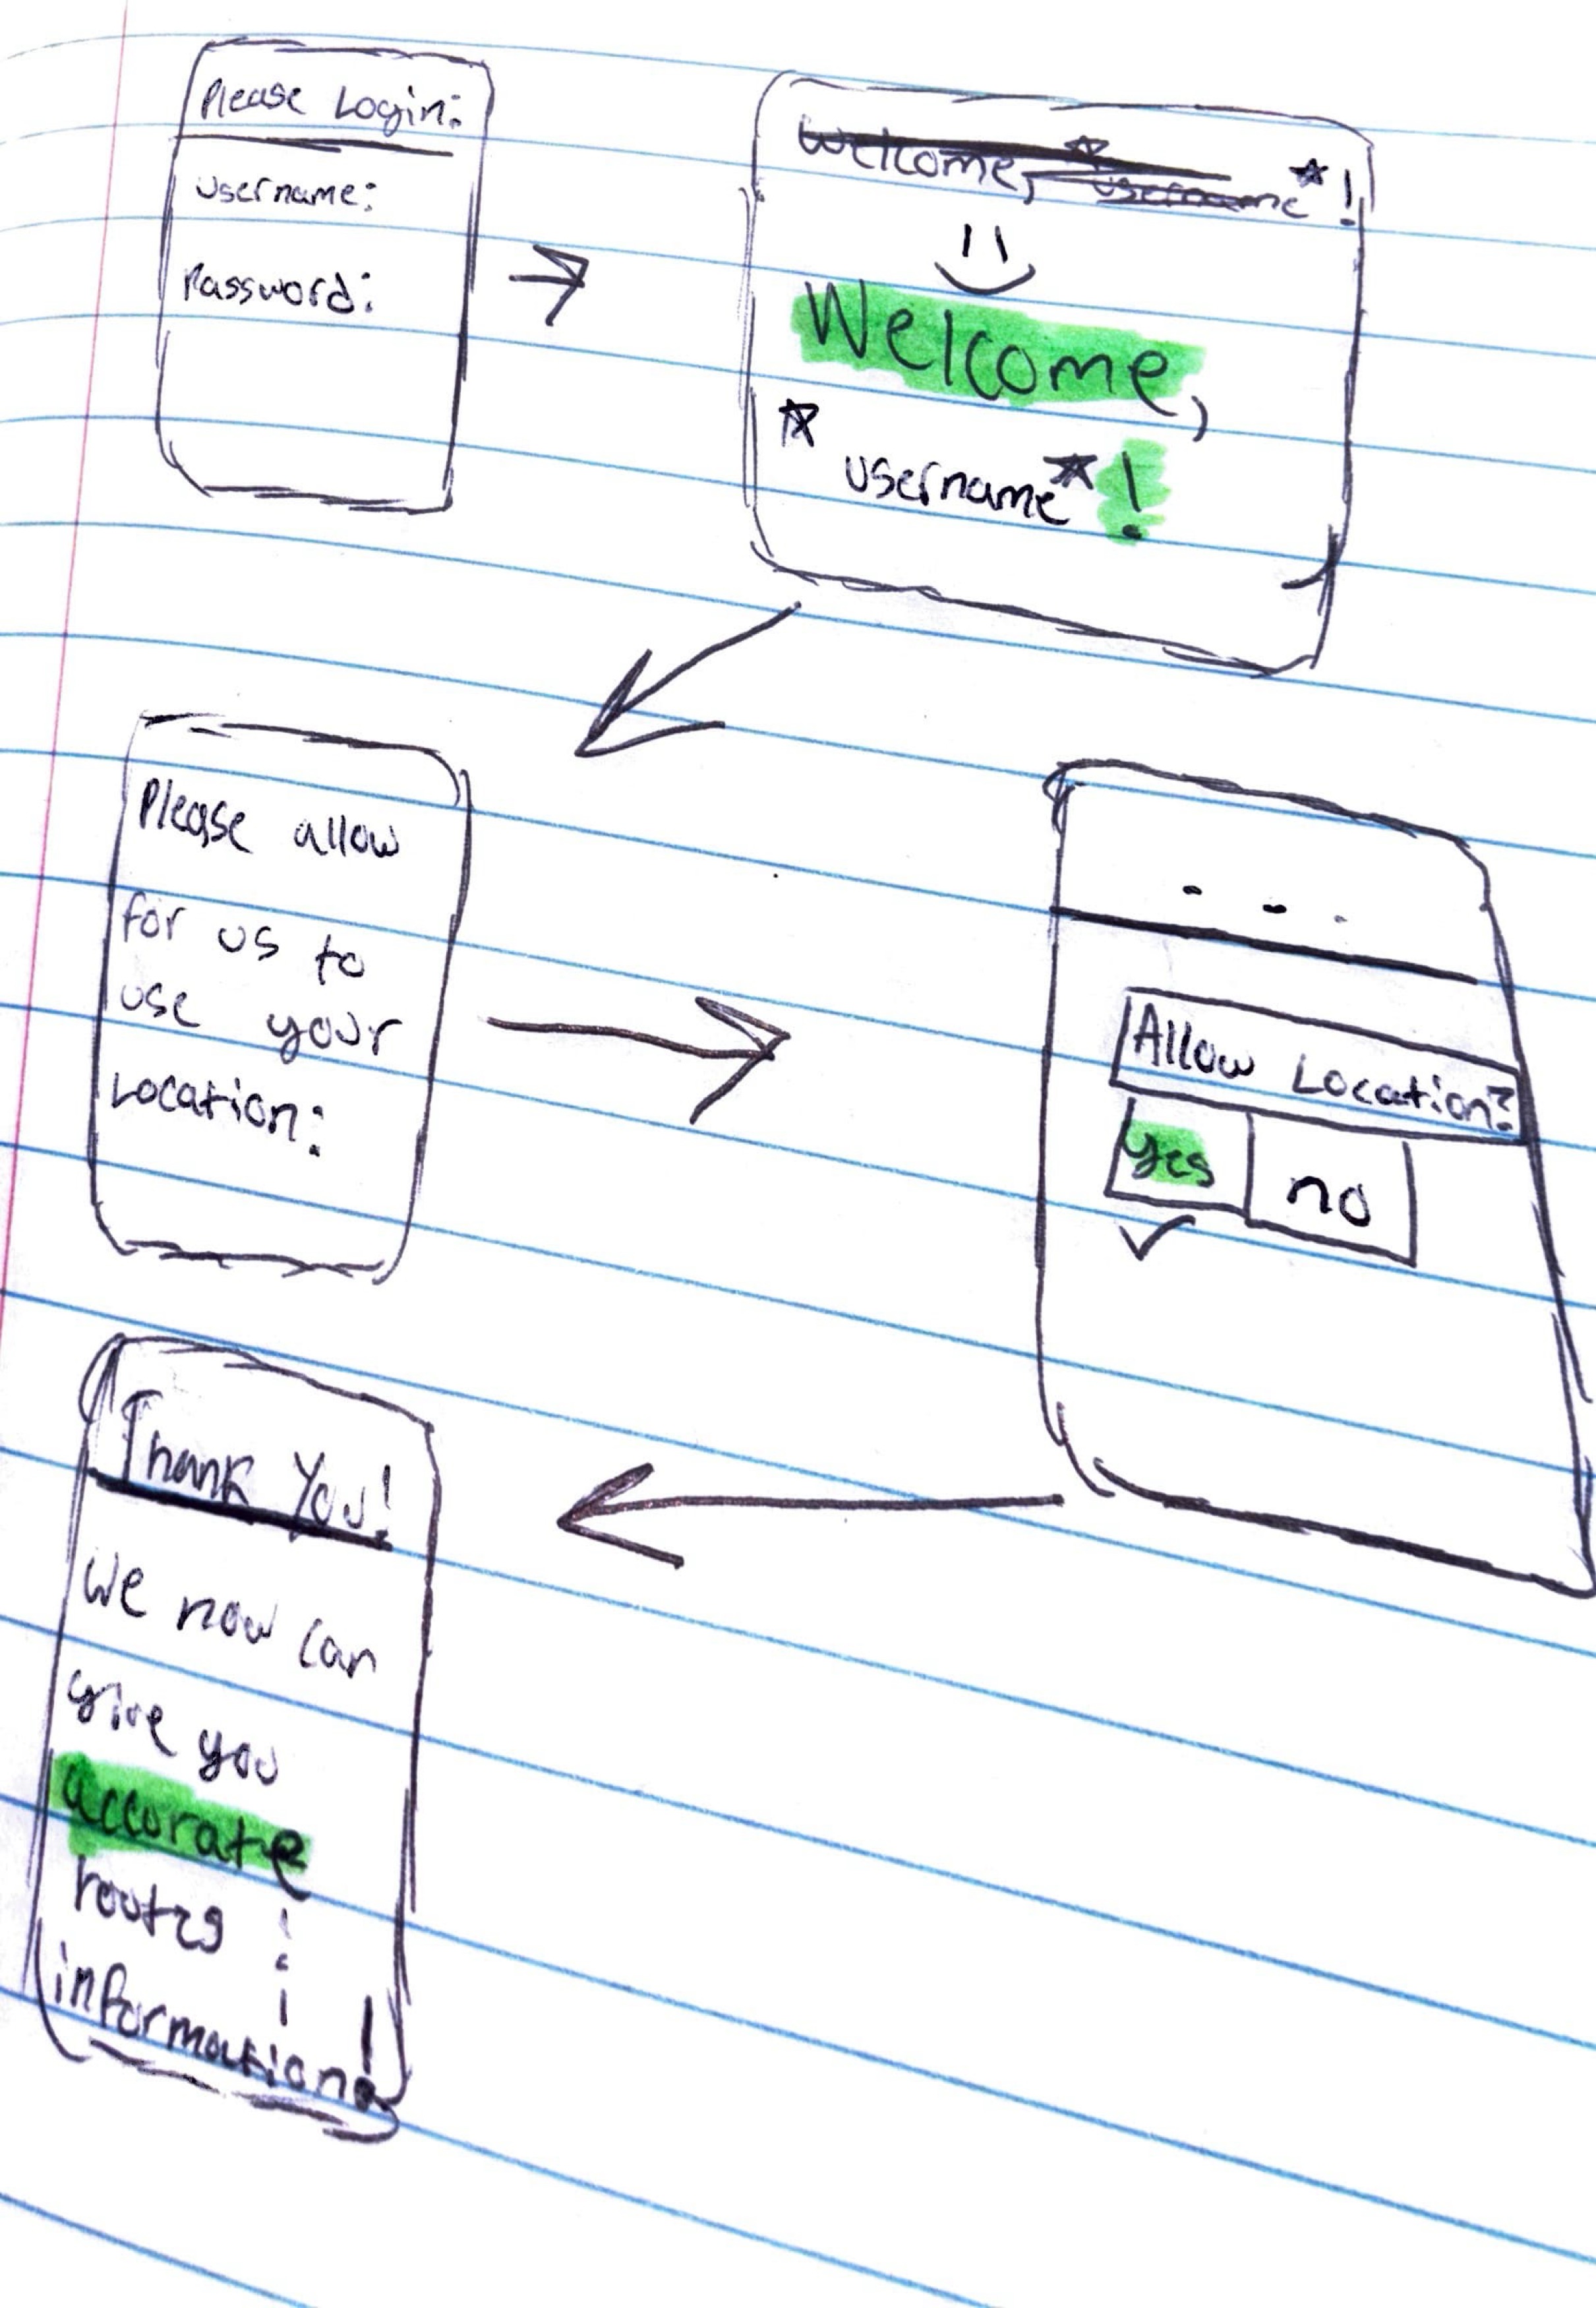 Please Login:
username:
Password:
Welcome, *username*!
Welcome,
*username*!
Please allow
for us to
use your
Location:
...
Allow Location?
yes no
Thank You!
We now can
give you
accurate
routes
information!